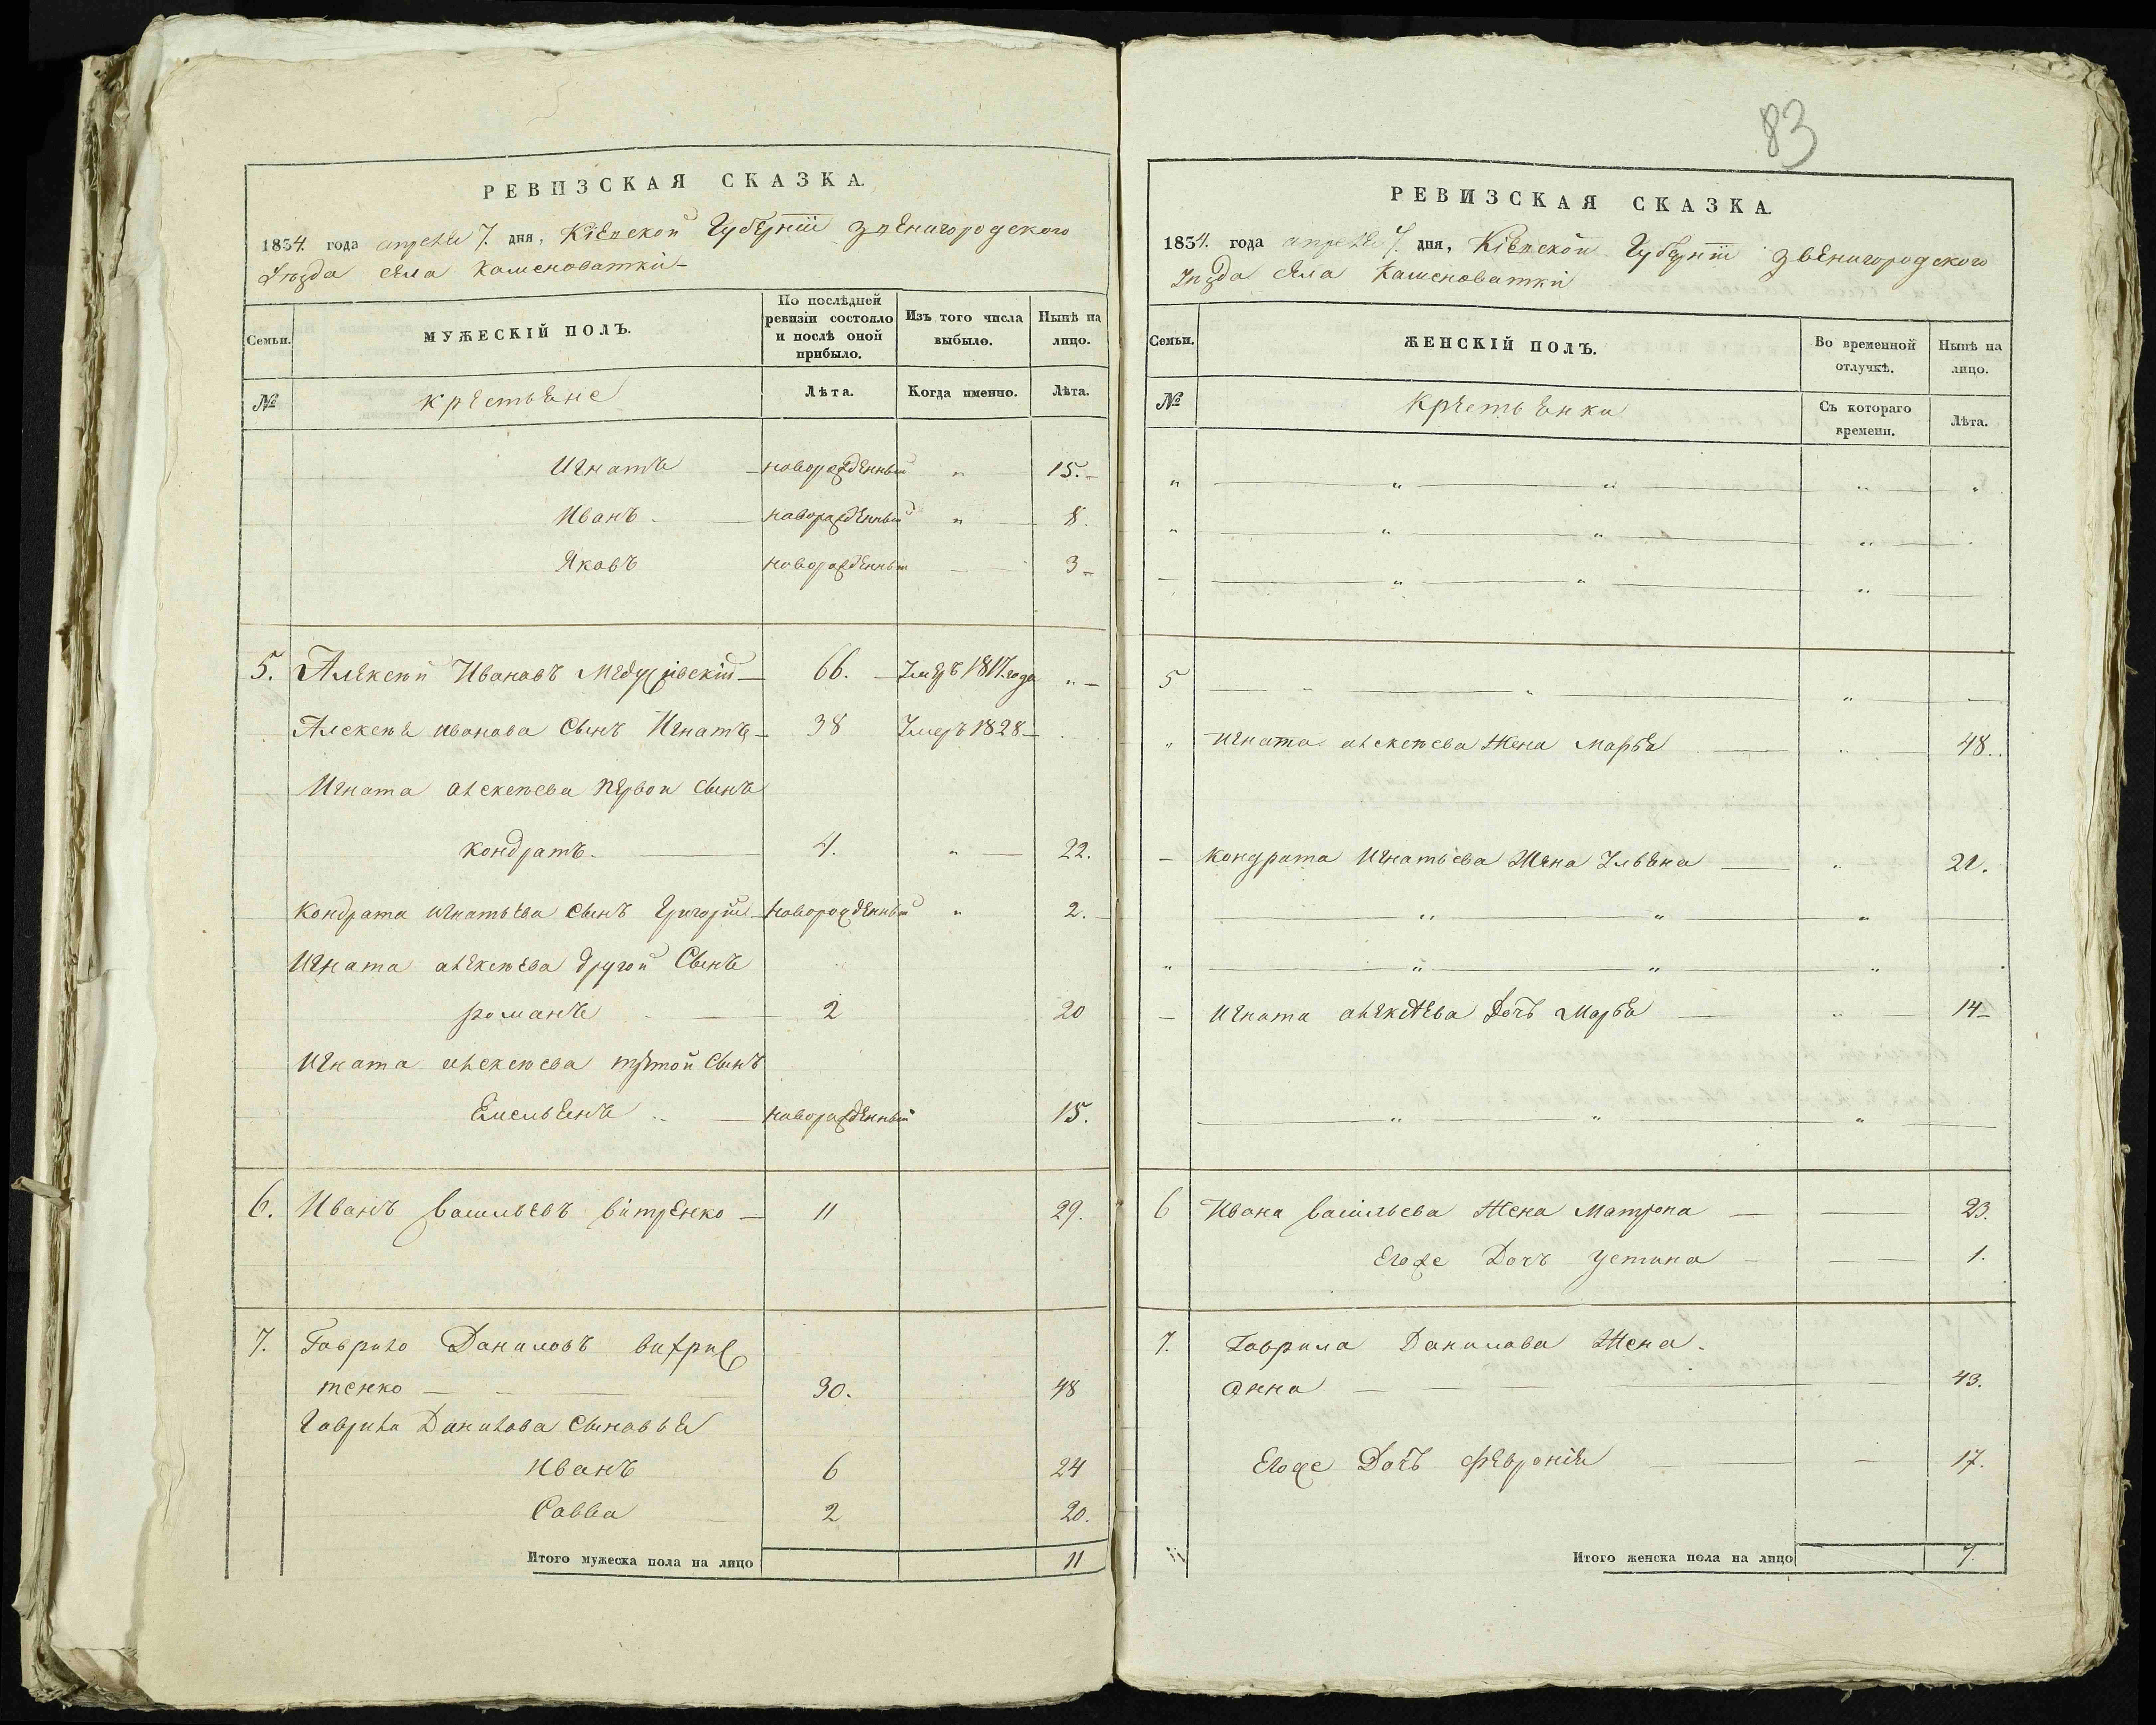 РЕВИЗСКАЯ СКАЗКА.
1834. года апреля 7. дня, Кіевской Губерніи Звенигородского
Уѣзда села Каменоватки
Семьи.
МУЖЕСКІЙ ПОЛЪ.
По послѣдней ревизіи состояло и послѣ оной прибыло.
Изъ того числа выбыло.
Нынѣ на лицо.
№ крестьяне Лѣта. Когда именно. Лѣта.
Игнатъ новорожденный „ 15.
Иванъ. новорожденный „ 8.
Яковъ новорожденный 3
5. Алексѣй Ивановъ 66. Умеръ 1817. года „
Алексея иванова Сынъ Игнатъ 38 Умеръ 1828
Игната алексѣева первой Сынъ
кондратъ. 4. „ 22.
Кондрата игнатьева сынъ Григорій новорожденный „ 2.
Игната алексѣева другой Сынъ
романъ 2 20
Игната алексѣева третой сынъ
Емельянъ новорожденный 15.
6. Иванъ Васильевъ Витренко 11 29.
7. Гаврило Даниловъ
тенко 30. 48
Гаврила Данилова Сыновья
Иванъ 6 24
Савва 2 20.
Итого мужеска пола на лицо 11
83
РЕВИЗСКАЯ СКАЗКА.
1834. года апреля 7. дня, Кіевской Губерніи Звенигородского
Уѣзда села Каменоватки
Семьи.
ЖЕНСКІЙ ПОЛЪ.
Во временной отлучкѣ.
Нынѣ на лицо.
№ Крестьянки Съ котораго времени. Лѣта.
„ „ „ „ „
„ „ „ „
„ „ „
5 „ „ „
„ Игната алексѣева Жена Марья „ 48.
Кондрата Игнатьева Жена Ульяна „ 21.
„ „ „
„ „ „ „
Игната алексѣева Дочь Марья „ 14
„ „ „
6 Ивана Васильева Жена Матрона 23.
Егоже Дочь Устина 1.
7. Гаврила Данилова Жена.
Анна 43.
Егоже Дочь Февронія 17.
Итого женска пола на лицо 7